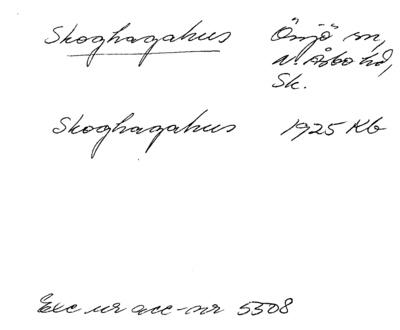 Skoghagahus Össjö sn,
N. Åsbo hd,
Sk.
Skoghagahus 1925 Kb
Exc ur acc-nr 5508